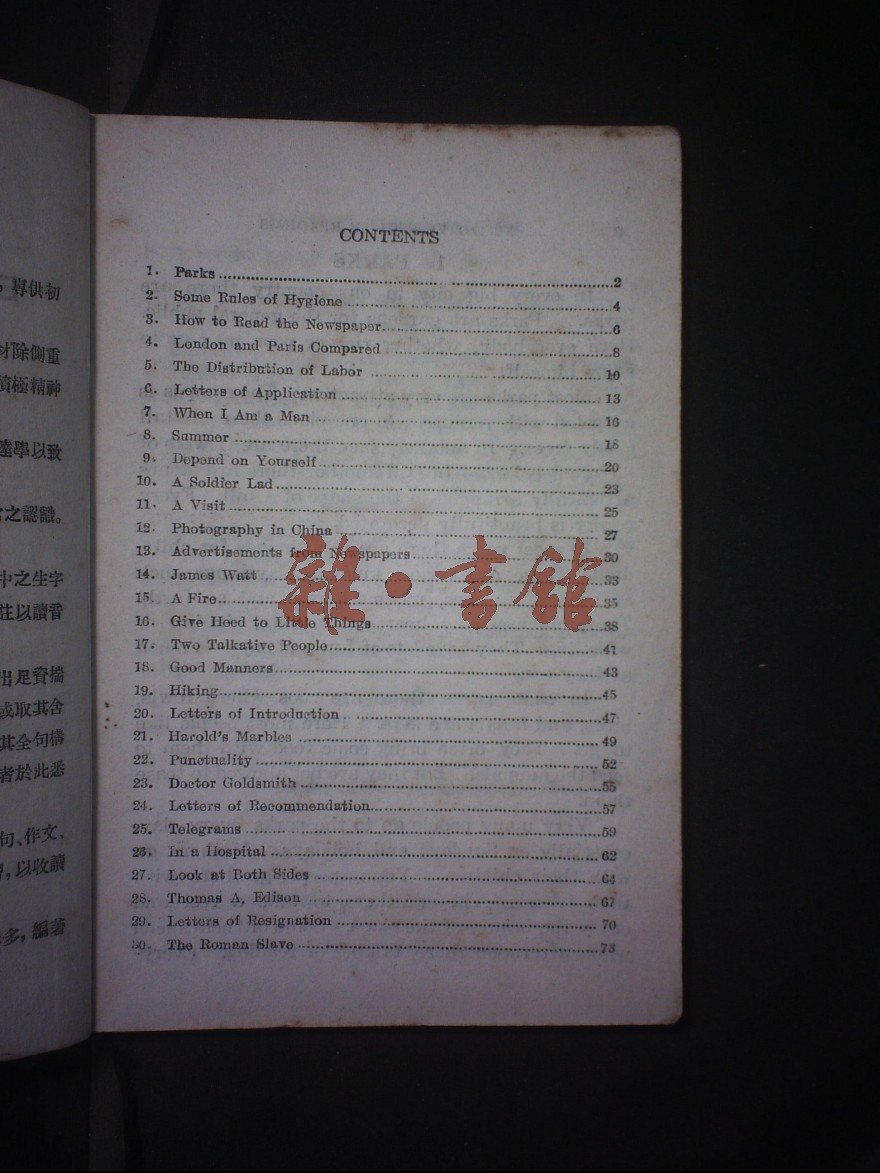 ，專供初
材除側重
積極精神
達學以致
之認識。
中之生字
註以讀音
出足資揣
或取其含
其全句構
者於此悉
句、作文、
，以收讀
多，編著
CONTENTS
1. Parks 2
2. Some Rules of Hygiene 4
3. How to Read the Newspaper 6
4. London and Paris Compared 8
5. The Distribution of Labor 10
6. Letters of Application 13
7. When I Am a Man 16
8. Summer 18
9. Depend on Yourself 20
10. A Soldier Lad 23
11. A Visit 25
12. Photography in China 27
13. Advertisements from Newspapers 30
14. James Watt 33
15. A Fire 35
16. Give Heed to Little Things 38
17. Two Talkative People 41
18. Good Manners 43
19. Hiking 45
20. Letters of Introduction 47
21. Harold's Marbles 49
22. Punctuality 52
23. Doctor Goldsmith 55
24. Letters of Recommendation 57
25. Telegrams 59
26. In a Hospital 62
27. Look at Both Sides 64
28. Thomas A, Edison 67
29. Letters of Resignation 70
30. The Roman Slave 73
雜·書館